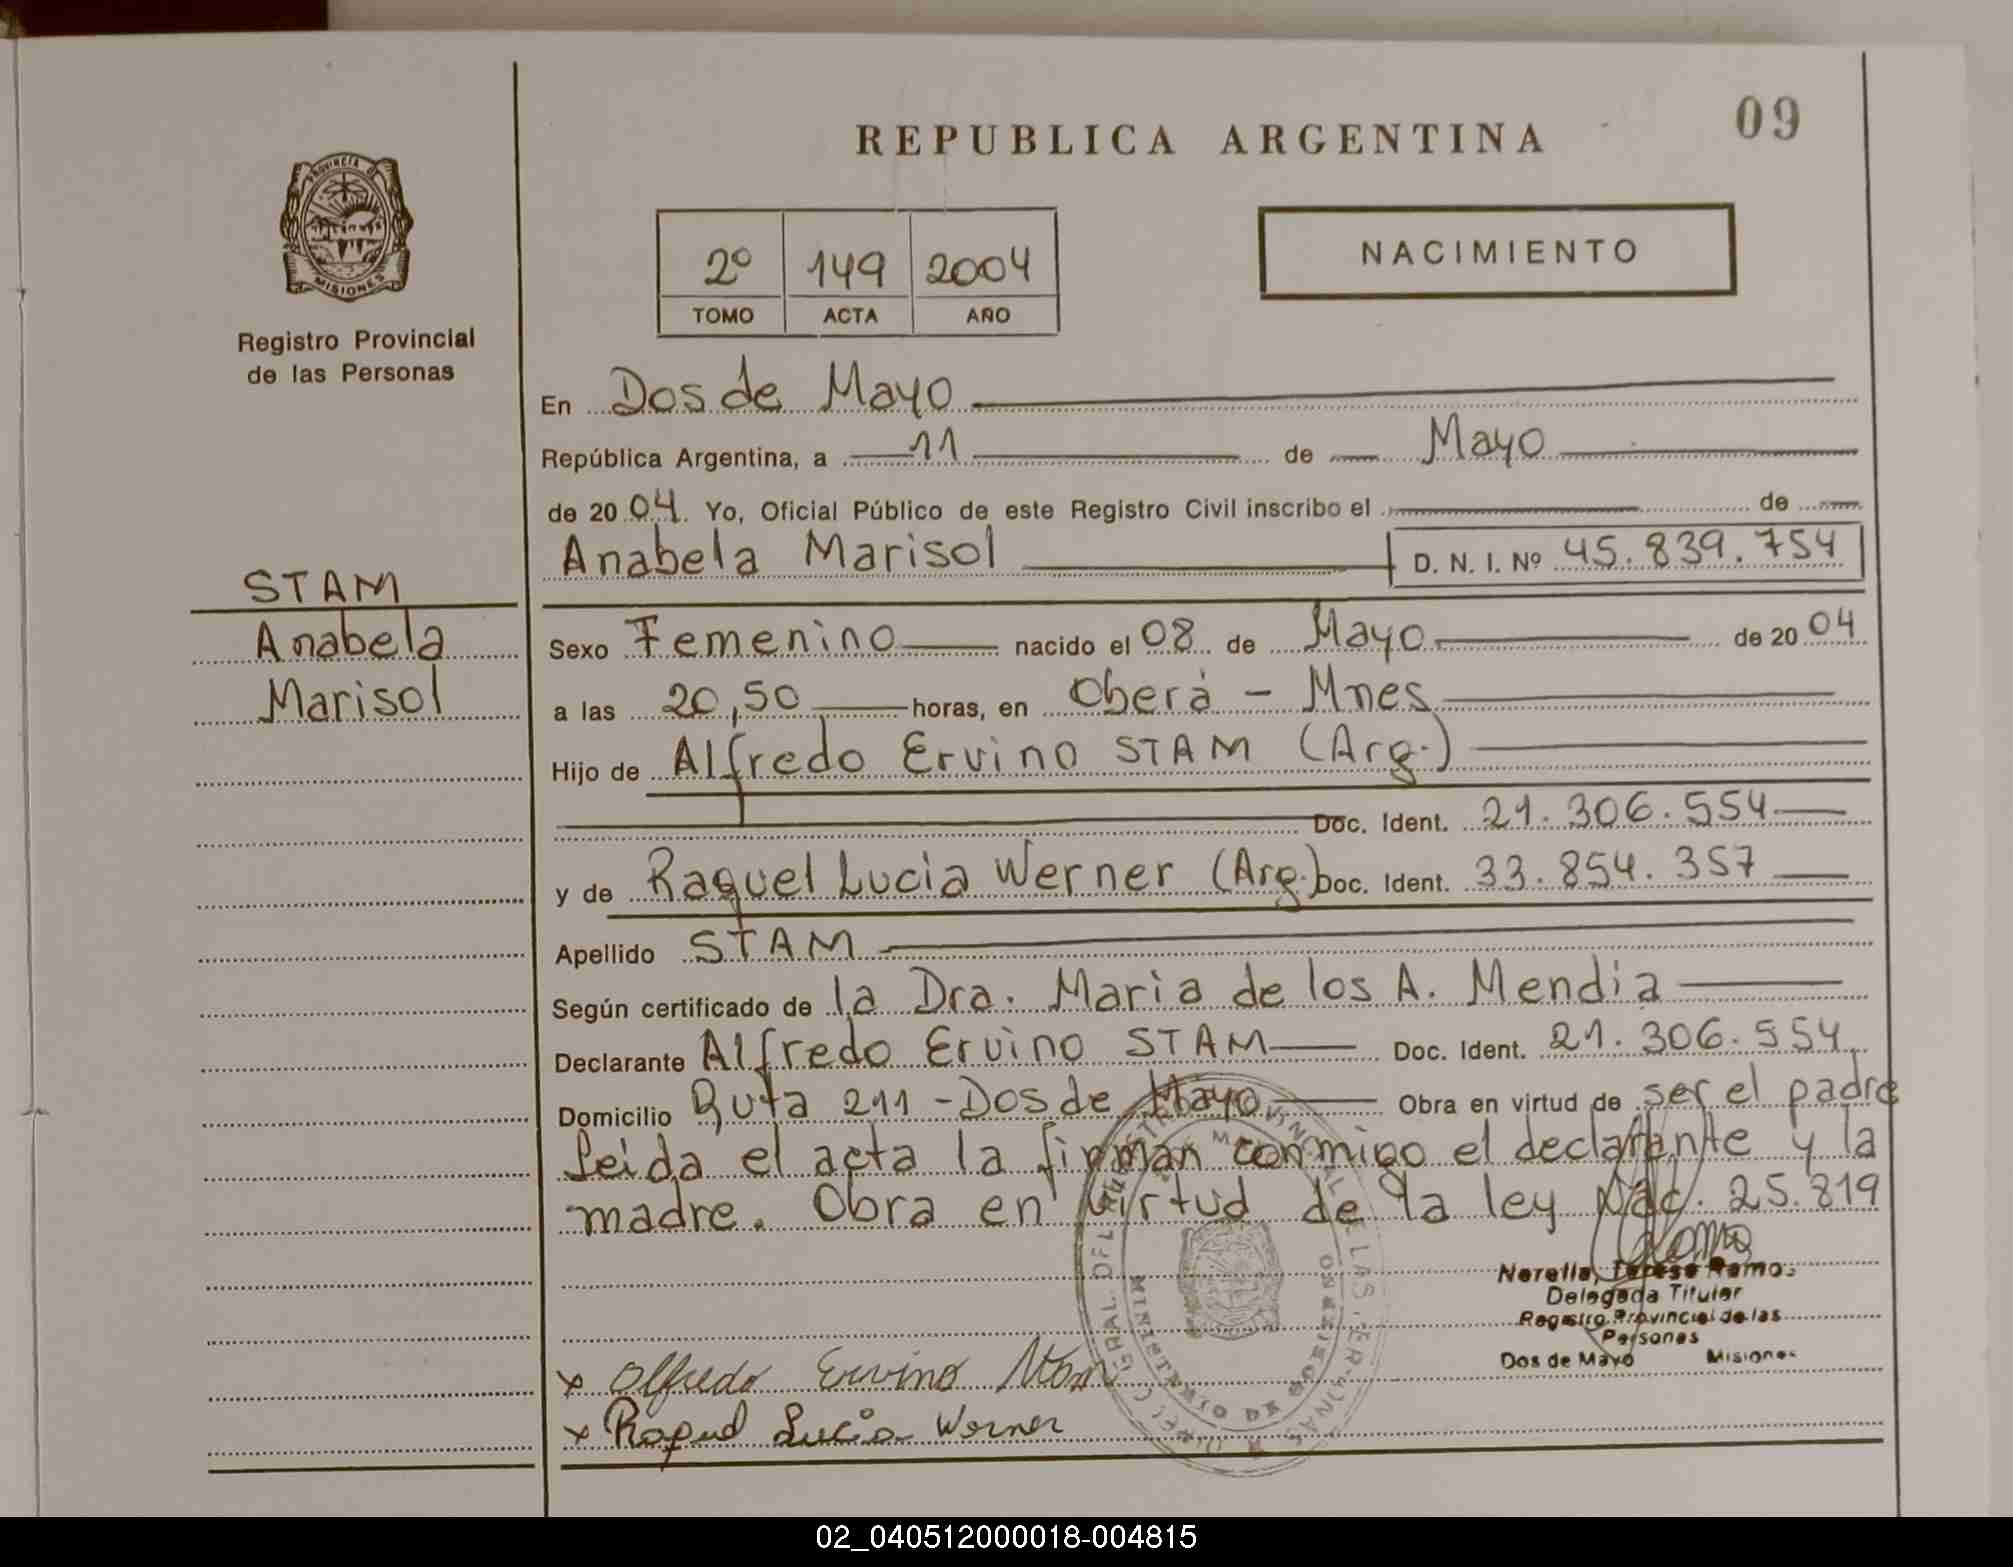 REPUBLICA ARGENTINA
09
PROVINCIA DE
MISIONES
Registro Provincial
de las Personas
2º 149 2004
TOMO ACTA AÑO
NACIMIENTO
STAM
Anabela
Marisol
En Dos de Mayo
República Argentina, a 11 de Mayo
de 2004. Yo, Oficial Público de este Registro Civil inscribo el de
Anabela Marisol D. N. I. Nº 45.839.754
Sexo Femenino nacido el 08 de Mayo de 2004
a las 20,50 horas, en Oberá - Mnes
Hijo de Alfredo Ervino STAM (Arg.)
Doc. Ident. 21.306.554
y de Raquel Lucia Werner (Arg.) Doc. Ident. 33.854.357
Apellido STAM
Según certificado de la Dra. Maria de los A. Mendia
Declarante Alfredo Ervino STAM Doc. Ident. 21.306.554
Domicilio Ruta 211 - Dos de Mayo Obra en virtud de ser el padre
Leida el acta la firman conmigo el declarante y la
madre. Obra en virtud de la ley Nac. 25.819
Norella, Teresa Ramos
Delegada Titular
Registro Provincial de las
Personas
Dos de Mayo Misiones
x Alfredo Ervino Stam
x Raquel Lucia Werner
02_040512000018-004815